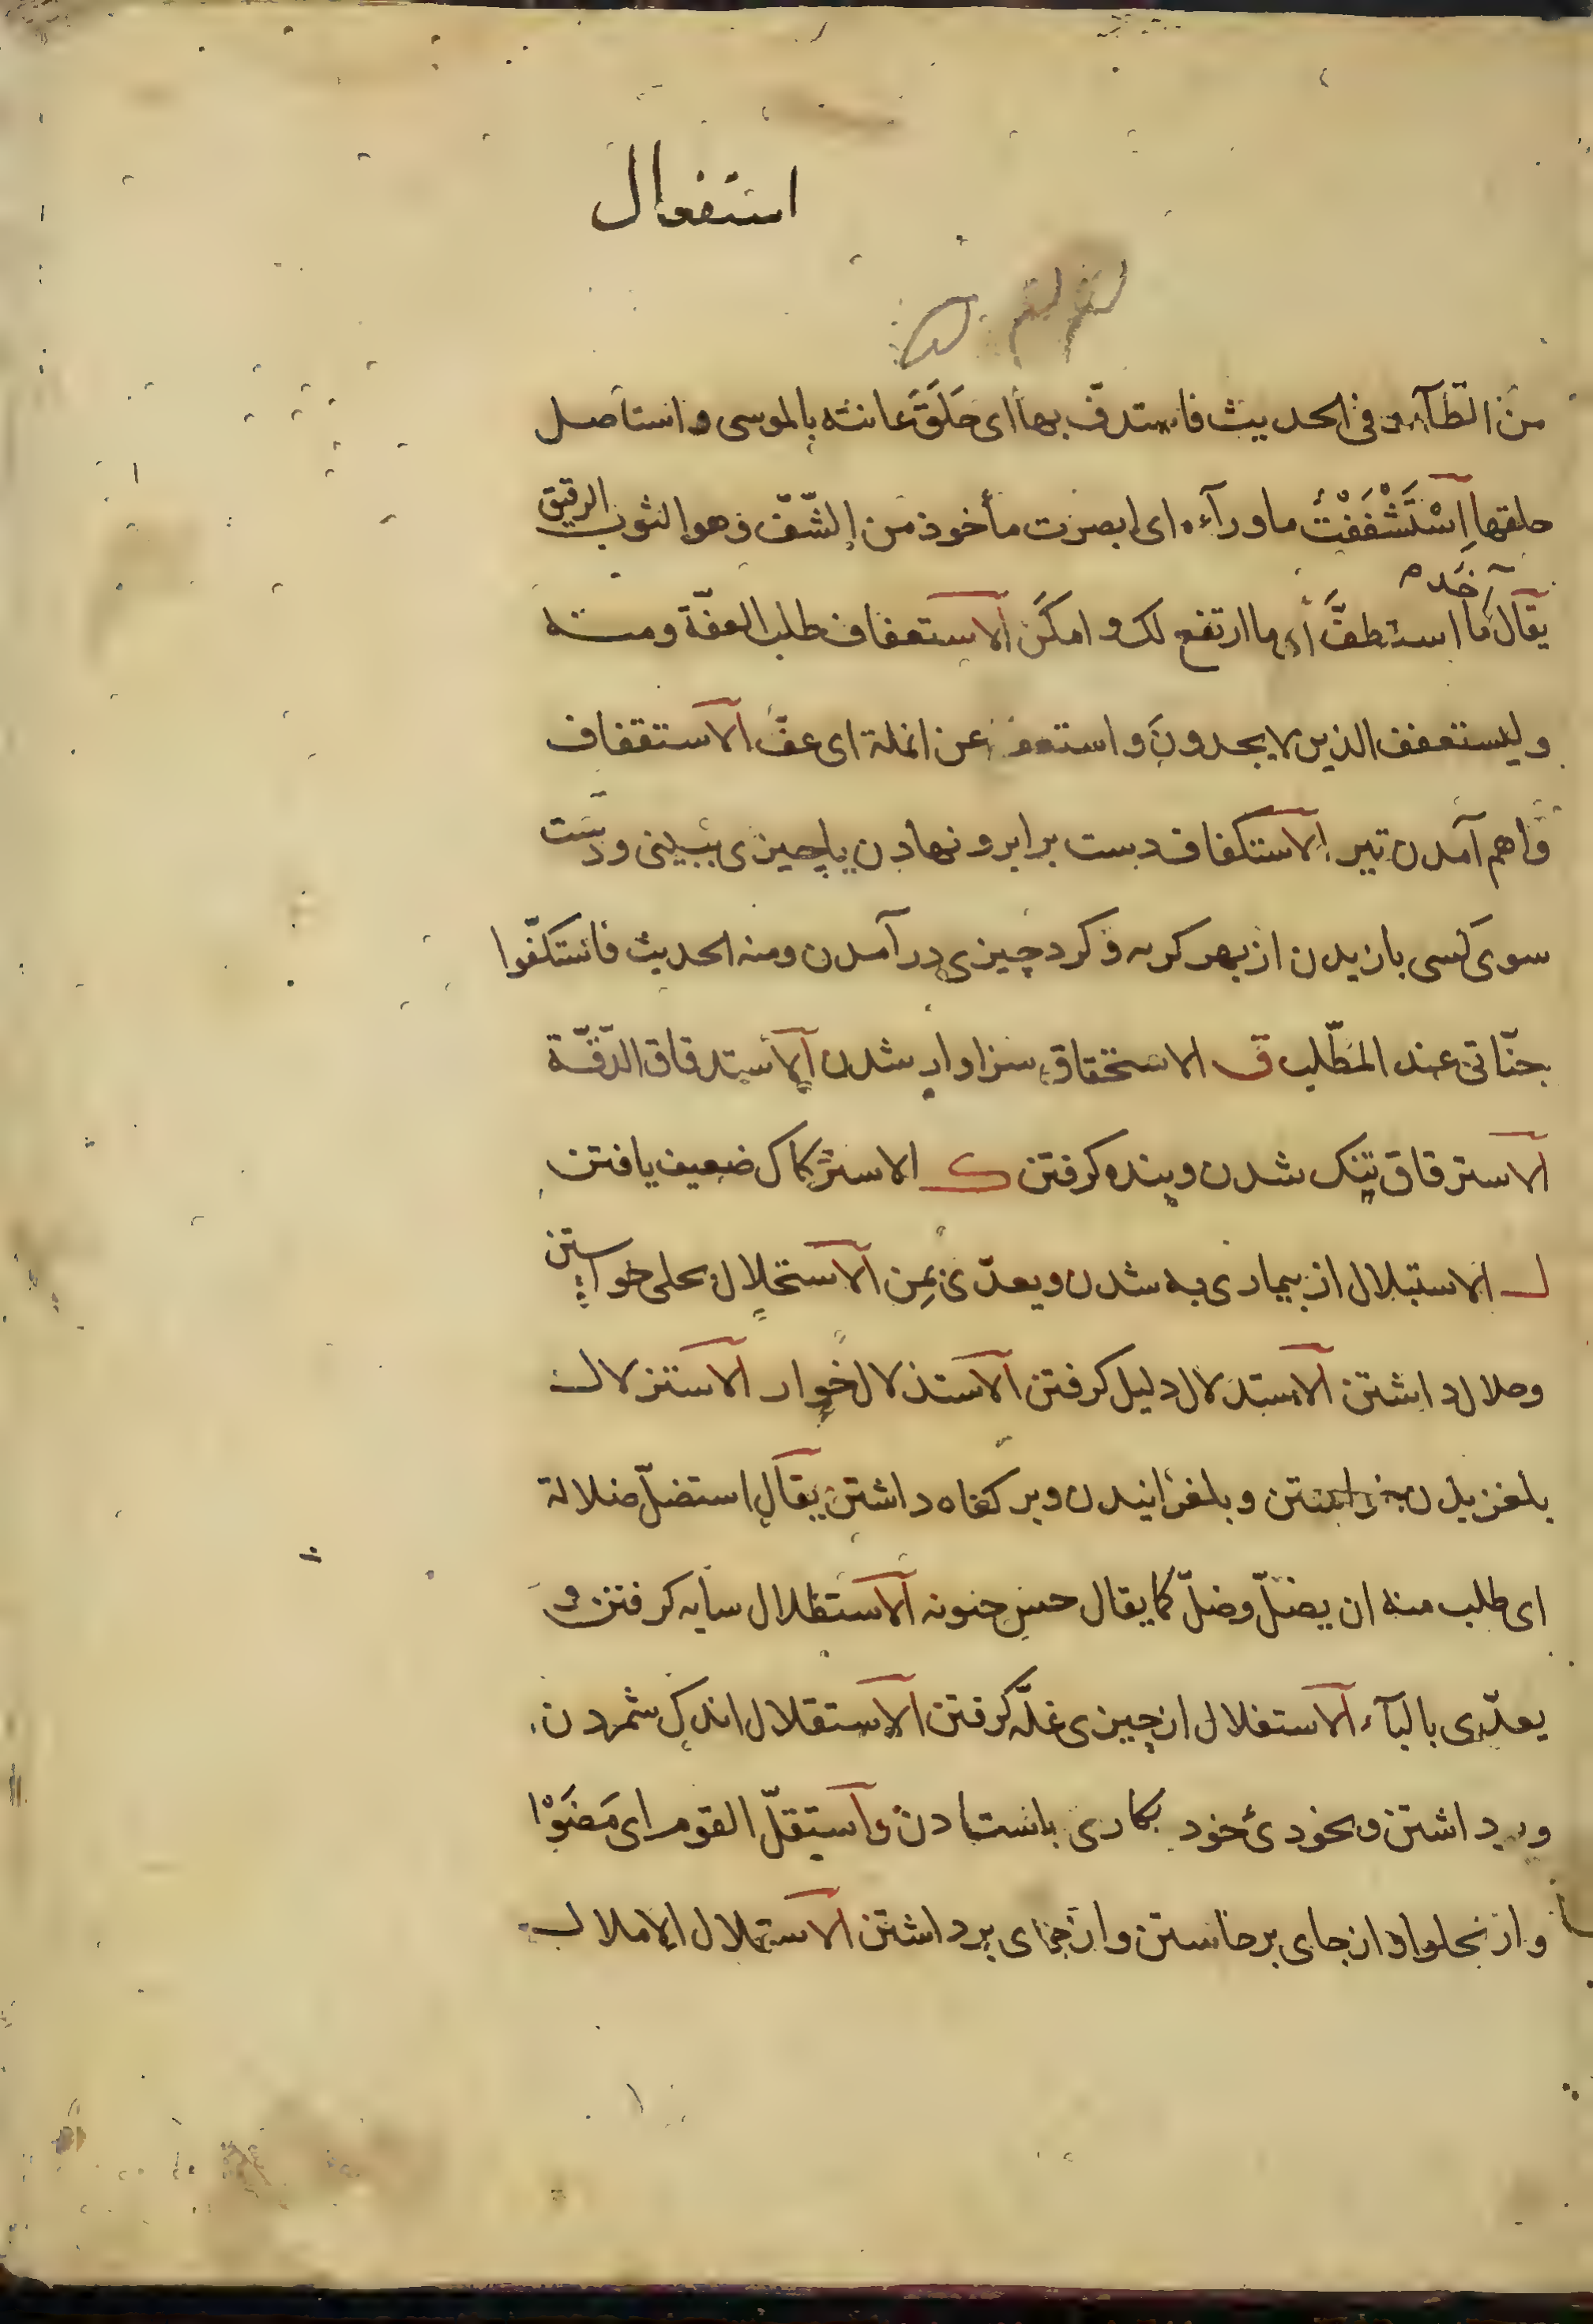 استفعال
من الطآء و فی الحدیث فاستدفّ بها ای حَلَقَ عانته بالموسی و استاصل
حلقها اِسْتَشْفَفْتُ ما ورآءه ای ابصرت مأخوذ من الشّفّ و هو الثوب الرقیق
یقال خذ ما استطفَّ أی ما ارتفع لک و امکَن الاستعفاف طلب العفّة و منه
ولیستعفف الذین لا یجدون و استعف عن المسلة ای عفّ الاستقفاف
فراهم آمدن تیر الاستکفاف دست برابرو نهادن یا چیزی ببینی و دست
سوی کسی بازیدن از بهر کریه و کرد چیزی در آمدن و منه الحدیث فاستکفّوا
جنّاتی عند المطّلب ق الاستحقاق سزاوار شدن الاستدقاق الدّقّة
الاسترقاق تنک شدن و بنده کرفتن ک الاسترکاک ضعیف یافتن
ل الاستبلال از بیماری به شدن و یعدّی بمِن الاستحلال بحلی خواستن
و حلال داشتن الاستدلال دلیل کرفتن الاستذلال خوار الاستزلال
بلغزیدن خواستن و بلغزانیدن و بر کناه داشتن یقال استضلّ ضلالة
ای طلب منه ان یضلّ و ضلّ کما یقال جنّ جنونه الاستظلال سایه کرفتن و
یعدّی بالبآء الاستغلال از چیزی غلّه کرفتن الاستقلال اندک شمردن
و برداشتن و بخودیٔ خود بکاری باستادن و استقلّ القوم ای مَضَوْا
و ارتحلوا و از جای برخاستن و از جای برداشتن الاستملال الاملال